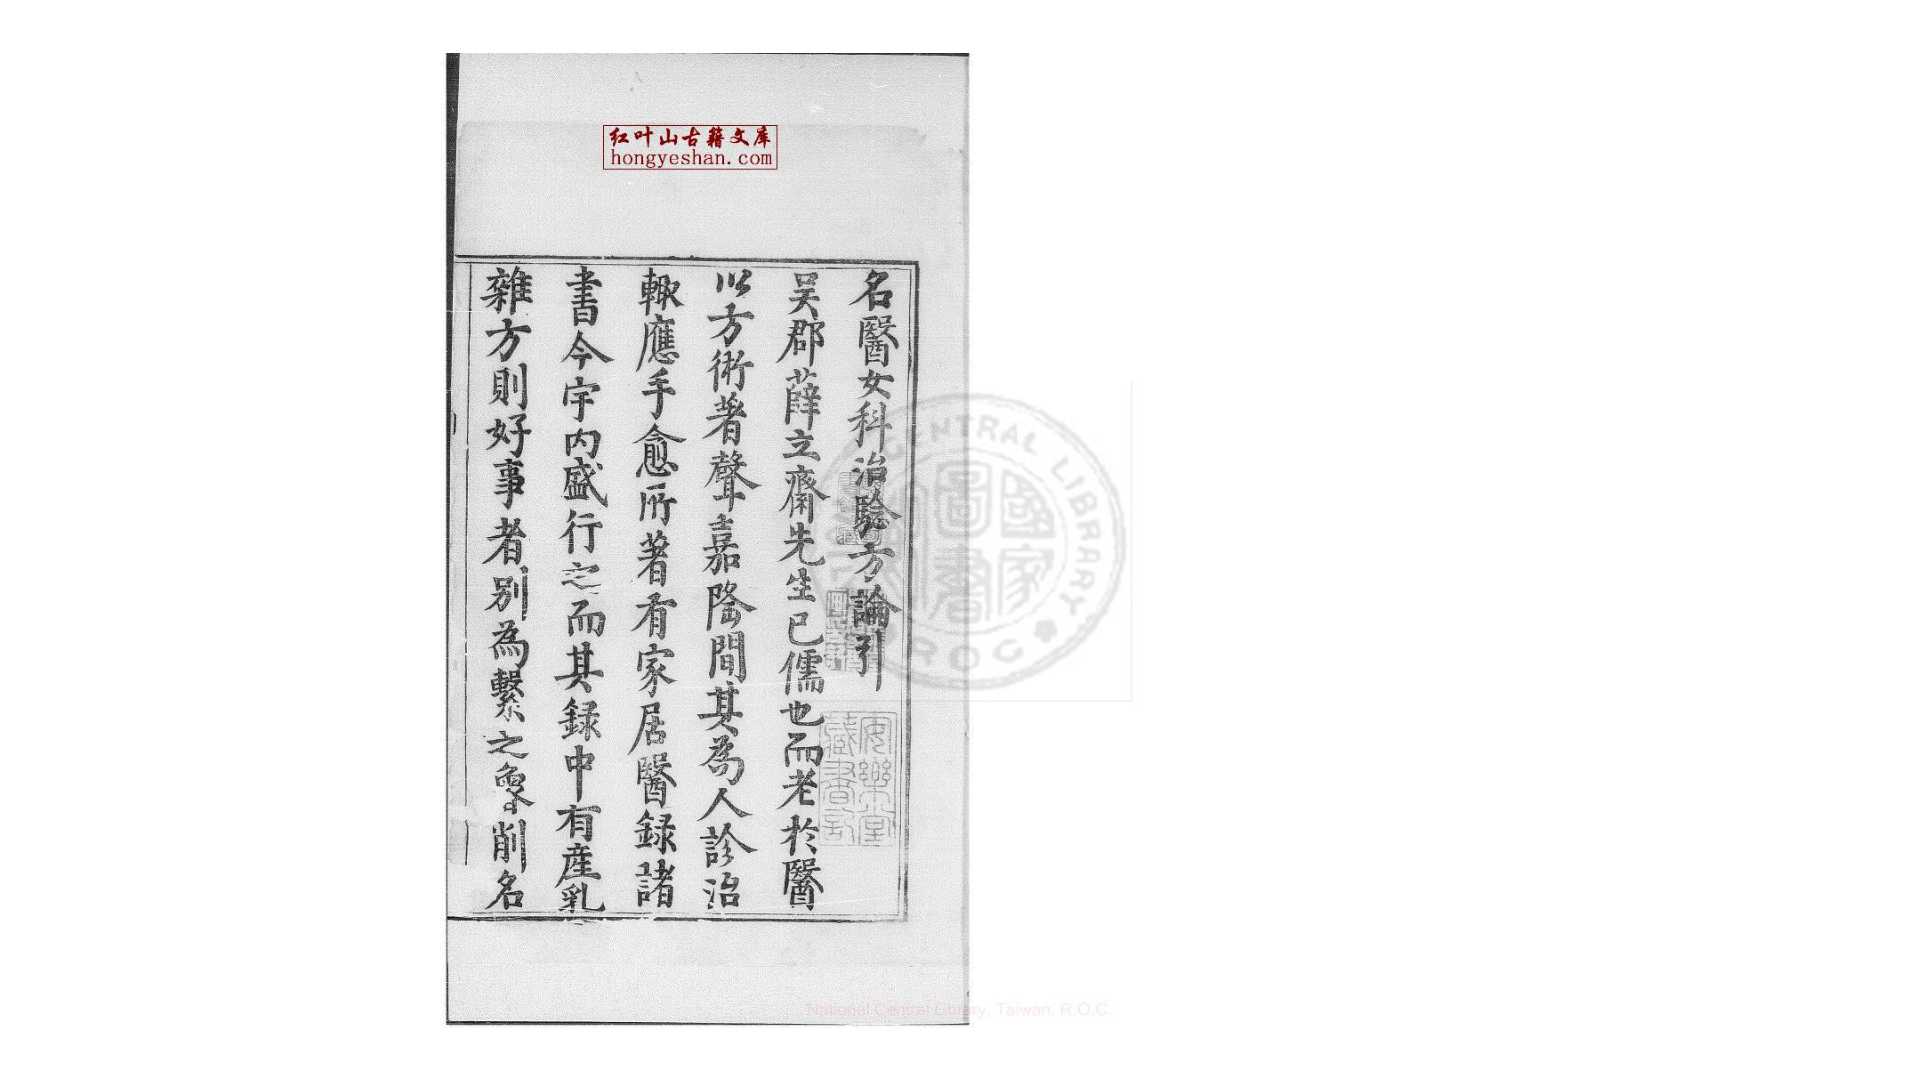 红叶山古籍文库
hongyeshan.com
名醫女科治驗方論引
吳郡薛立齋先生已儒也而老於醫
以方術著聲嘉隆間其為人診治
輙應手愈所著有家居醫録諸
書今宇内盛行之而其録中有産乳
雜方則好事者別為繫之剞劂名
CENTRAL LIBRARY
ROC
國家圖書
安樂堂
藏書記
National Central Library, Taiwan, R.O.C.